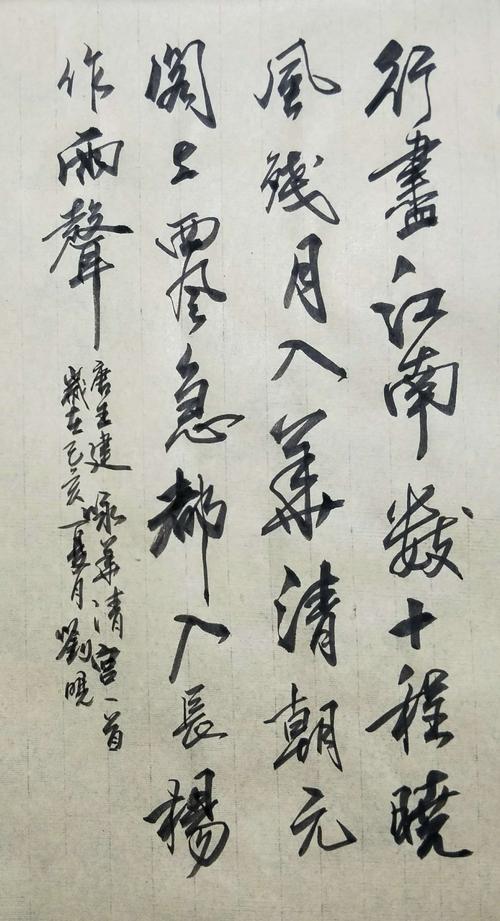 行盡江南數十程曉
風殘月入華清朝元
閣上西風急都入長楊
作雨聲
唐王建咏華清宮一首
歲在己亥夏月劉曉